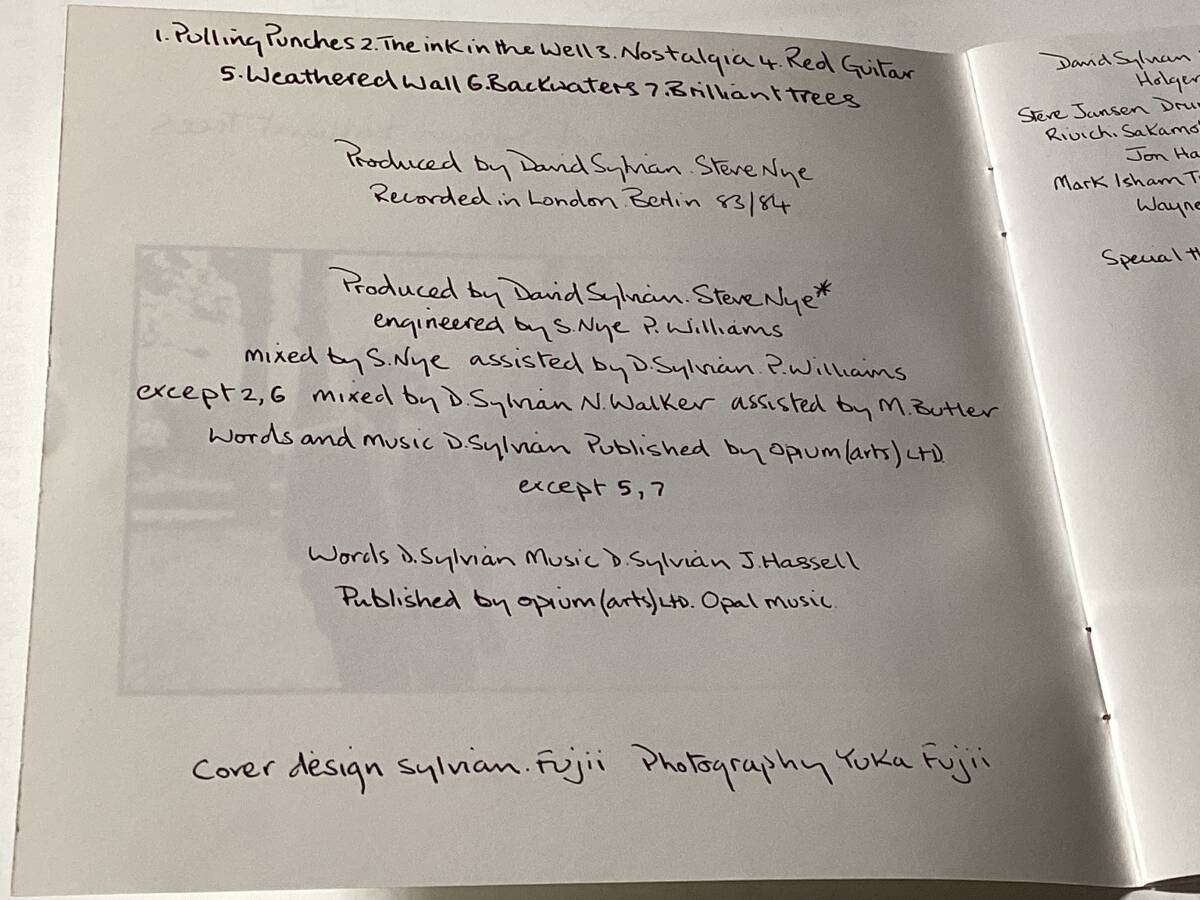 1. Pulling Punches 2. The ink in the Well 3. Nostalgia 4. Red Guitar
5. Weathered Wall 6. Backwaters 7. Brilliant trees
Produced by David Sylvian. Steve Nye
Recorded in London. Berlin 83/84
Produced by David Sylvian. Steve Nye*
engineered by S. Nye P. Williams
mixed by S. Nye assisted by D. Sylvian. P. Williams
except 2, 6 mixed by D. Sylvian N. Walker assisted by M. Butler
Words and music D. Sylvian Published by opium (arts) LTD.
except 5, 7
Words D. Sylvian Music D. Sylvian J. Hassell
Published by opium (arts) LTD. Opal music.
Cover design Sylvian. Fujii Photography Yuka Fujii
David Sylvian
Holger
Steve Jansen
Jon
Mark Isham
Wayne
Special